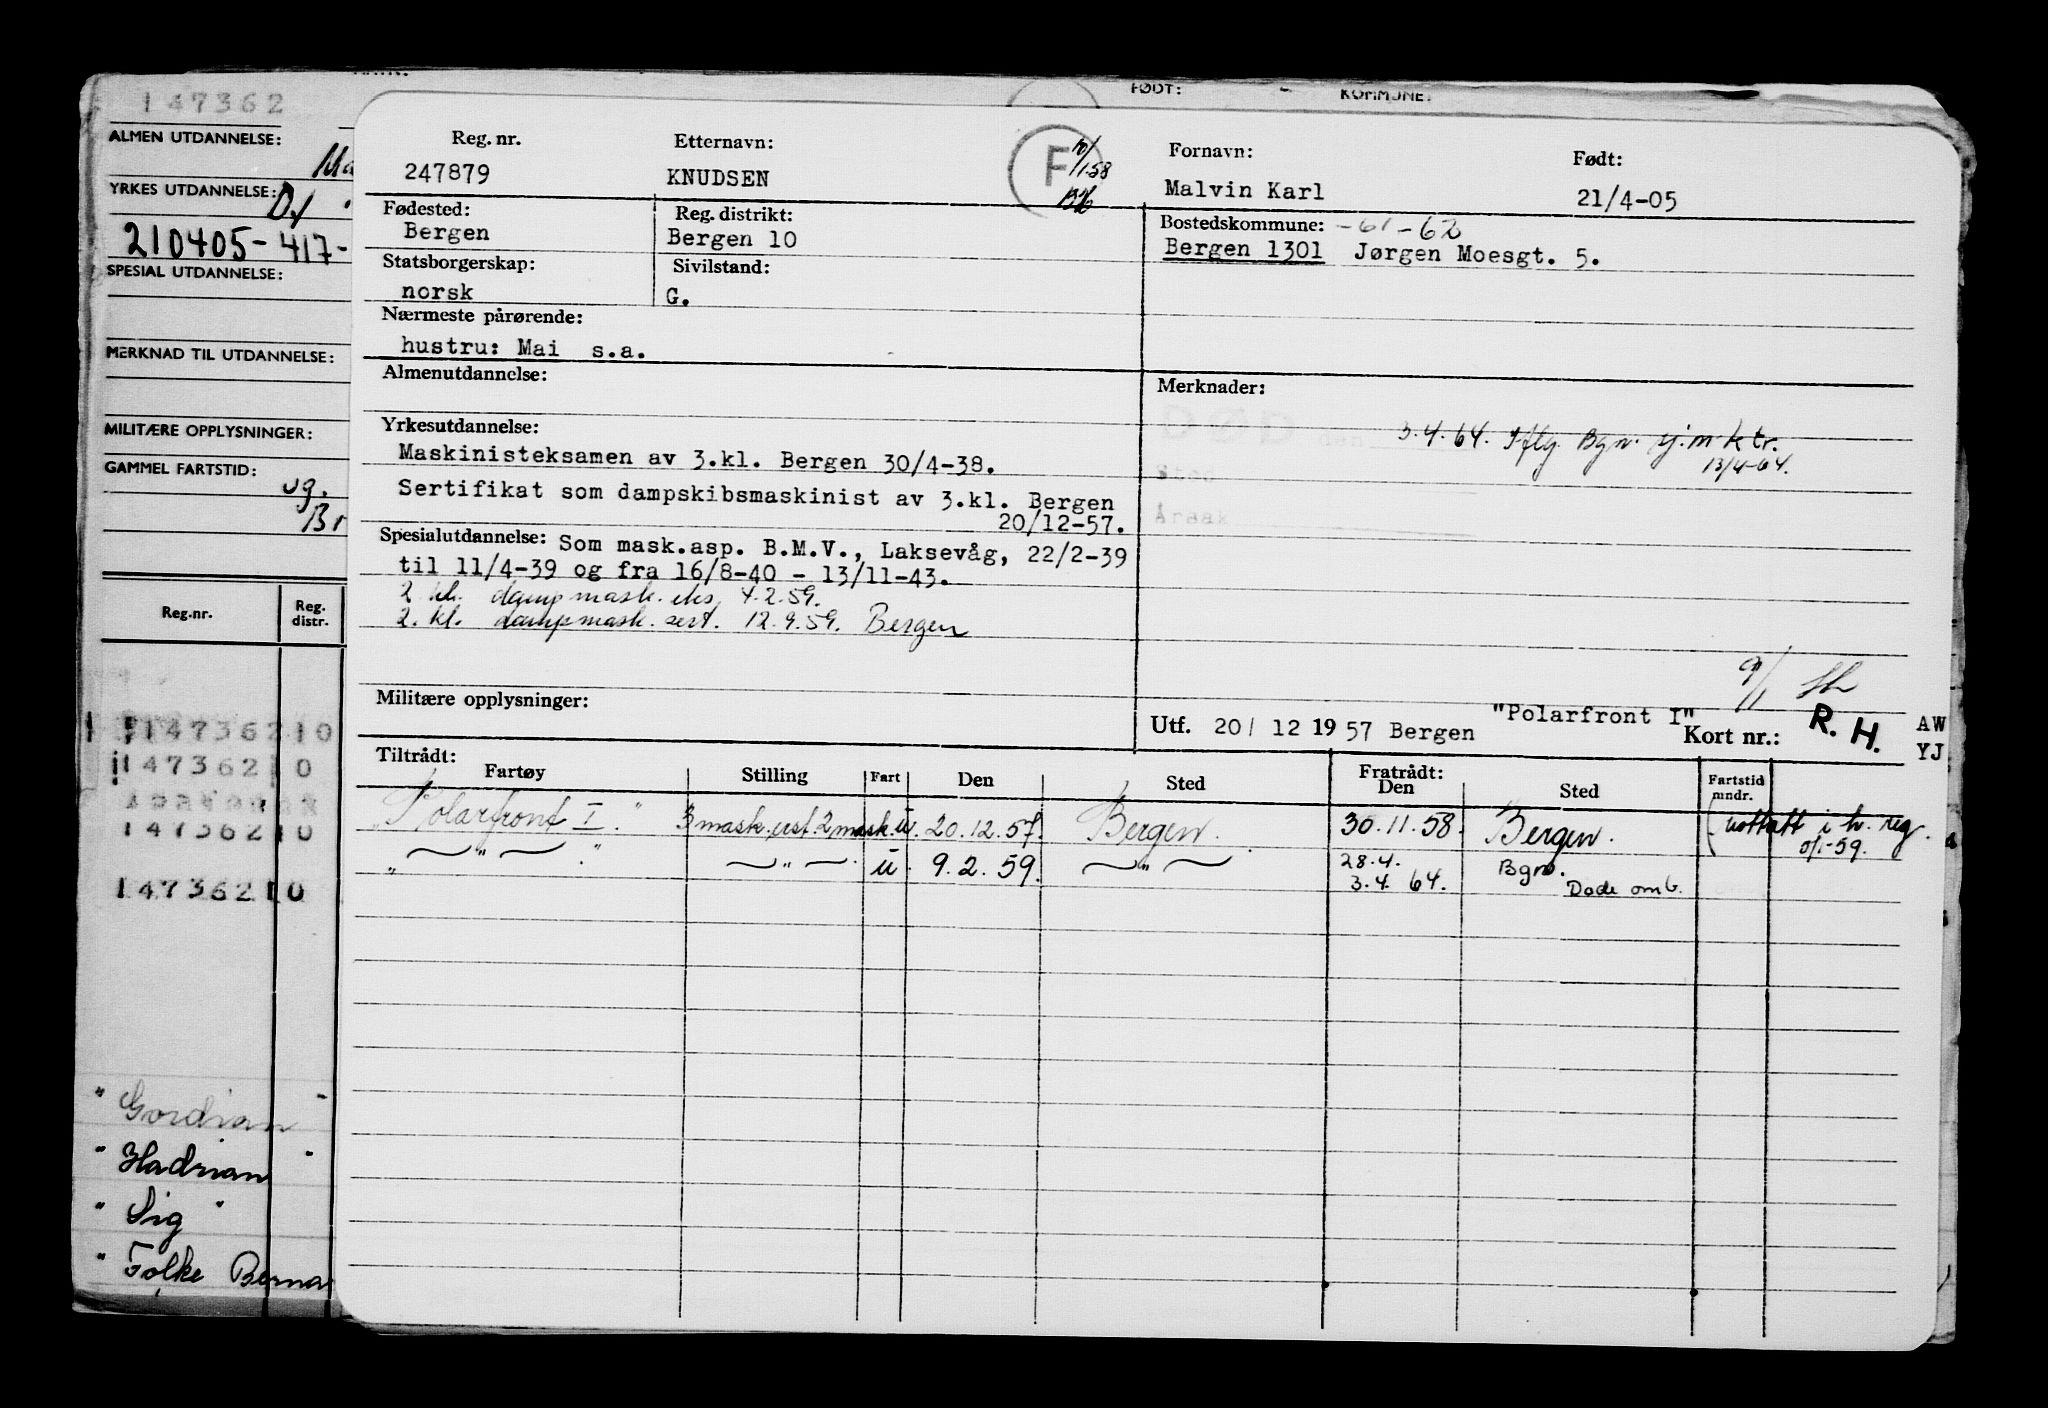 FØDT:
KOMMUNE:
147362
ALMEN UTDANNELSE:
YRKES UTDANNELSE:
210405-417-
SPESIAL UTDANNELSE:
MERKNAD TIL UTDANNELSE:
MILITÆRE OPPLYSNINGER:
GAMMEL FARTSTID:
Reg.nr.
Reg. distr.
147362 10
147362 10
147362 10
147362 10
" Gordian "
" Hadrian "
" Sig "
" Folke Berna
Reg. nr.
247879
Etternavn:
KNUDSEN
F
10/1-58
Fornavn:
Malvin Karl
Født:
21/4-05
Fødested:
Bergen
Reg. distrikt:
Bergen 10
Bostedskommune: -61-62
Bergen 1301 Jørgen Moesgt. 5.
Statsborgerskap:
norsk
Sivilstand:
G.
Nærmeste pårørende:
hustru: Mai s.a.
Almenutdannelse:
Merknader:
DØD den 3.4.64. Iflg. Bgn. sj.m.ktr.
13/4-64.
Sted
Årsak
Yrkesutdannelse:
Maskinisteksamen av 3.kl. Bergen 30/4-38.
Sertifikat som dampskibsmaskinist av 3.kl. Bergen
20/12-57.
Spesialutdannelse: Som mask.asp. B.M.V., Laksevåg, 22/2-39
til 11/4-39 og fra 16/8-40 - 13/11-43.
2 kl. dampmask. eks. 4.2.59.
2. kl. dampmask. sert. 12.9.59. Bergen
Militære opplysninger:
9/1
Utf. 20/ 12 19 57 Bergen "Polarfront I"
Kort nr.: R. H.
AW
YJ
Tiltrådt:
Fartøy Stilling Fart Den Sted
Fratrådt:
Den Sted
Fartstid mndr.
"Polarfront I." 3 mask. erst. 2 mask. u. 20.12.57. Bergen. 30.11.58. Bergen. (notatt i h. reg.
0/1-59.
" — " — " — " — u. 9.2.59. — " — 28.4. Bgn.
3.4.64. Døde omb.